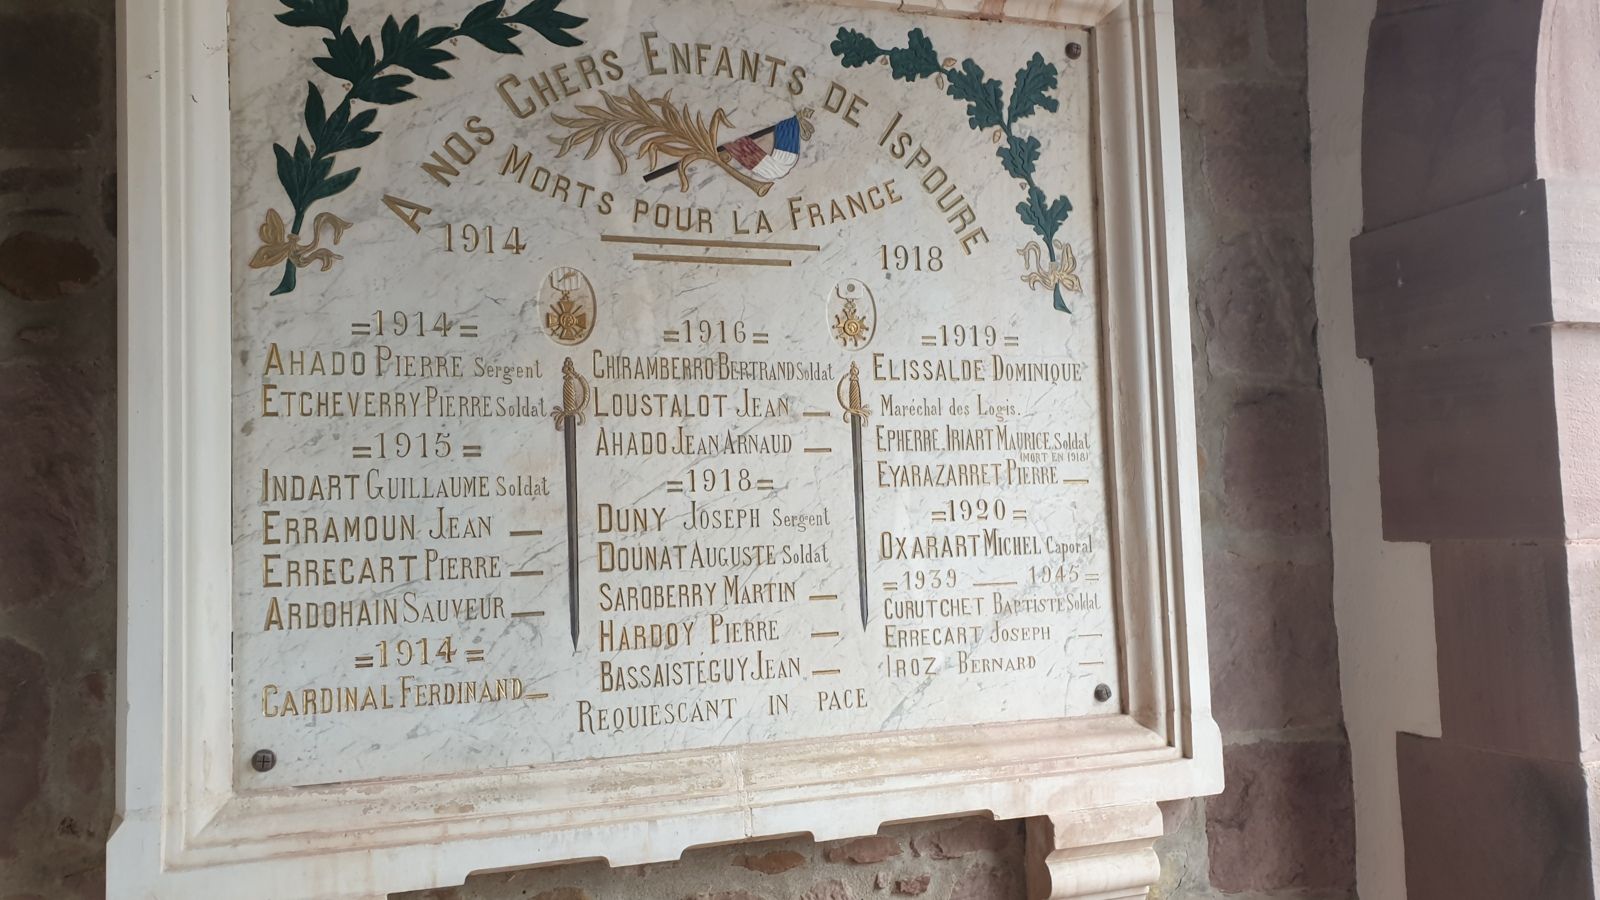 A NOS CHERS ENFANTS DE ISPOURE
MORTS POUR LA FRANCE
1914 1918
=1914=
AHADO PIERRE Sergent
ETCHEVERRY PIERRE Soldat
=1915=
INDART GUILLAUME Soldat
ERRAMOUN JEAN —
ERRECART PIERRE —
ARDOHAIN SAUVEUR —
=1914=
CARDINAL FERDINAND —
=1916=
CHIRAMBERRO BERTRAND Soldat
LOUSTALOT JEAN —
AHADO JEAN ARNAUD —
=1918=
DUNY JOSEPH Sergent
DOUNAT AUGUSTE Soldat
SAROBERRY MARTIN —
HARDOY PIERRE —
BASSAISTÉGUY JEAN —
=1919=
ELISSALDE DOMINIQUE
Maréchal des Logis.
EPHERRE IRIART MAURICE Soldat
(MORT EN 1918)
EYARAZARRET PIERRE —
=1920=
OXARART MICHEL Caporal
=1939 — 1945=
CURUTCHET BAPTISTE Soldat
ERRECART JOSEPH —
IROZ BERNARD —
REQUIESCANT IN PACE